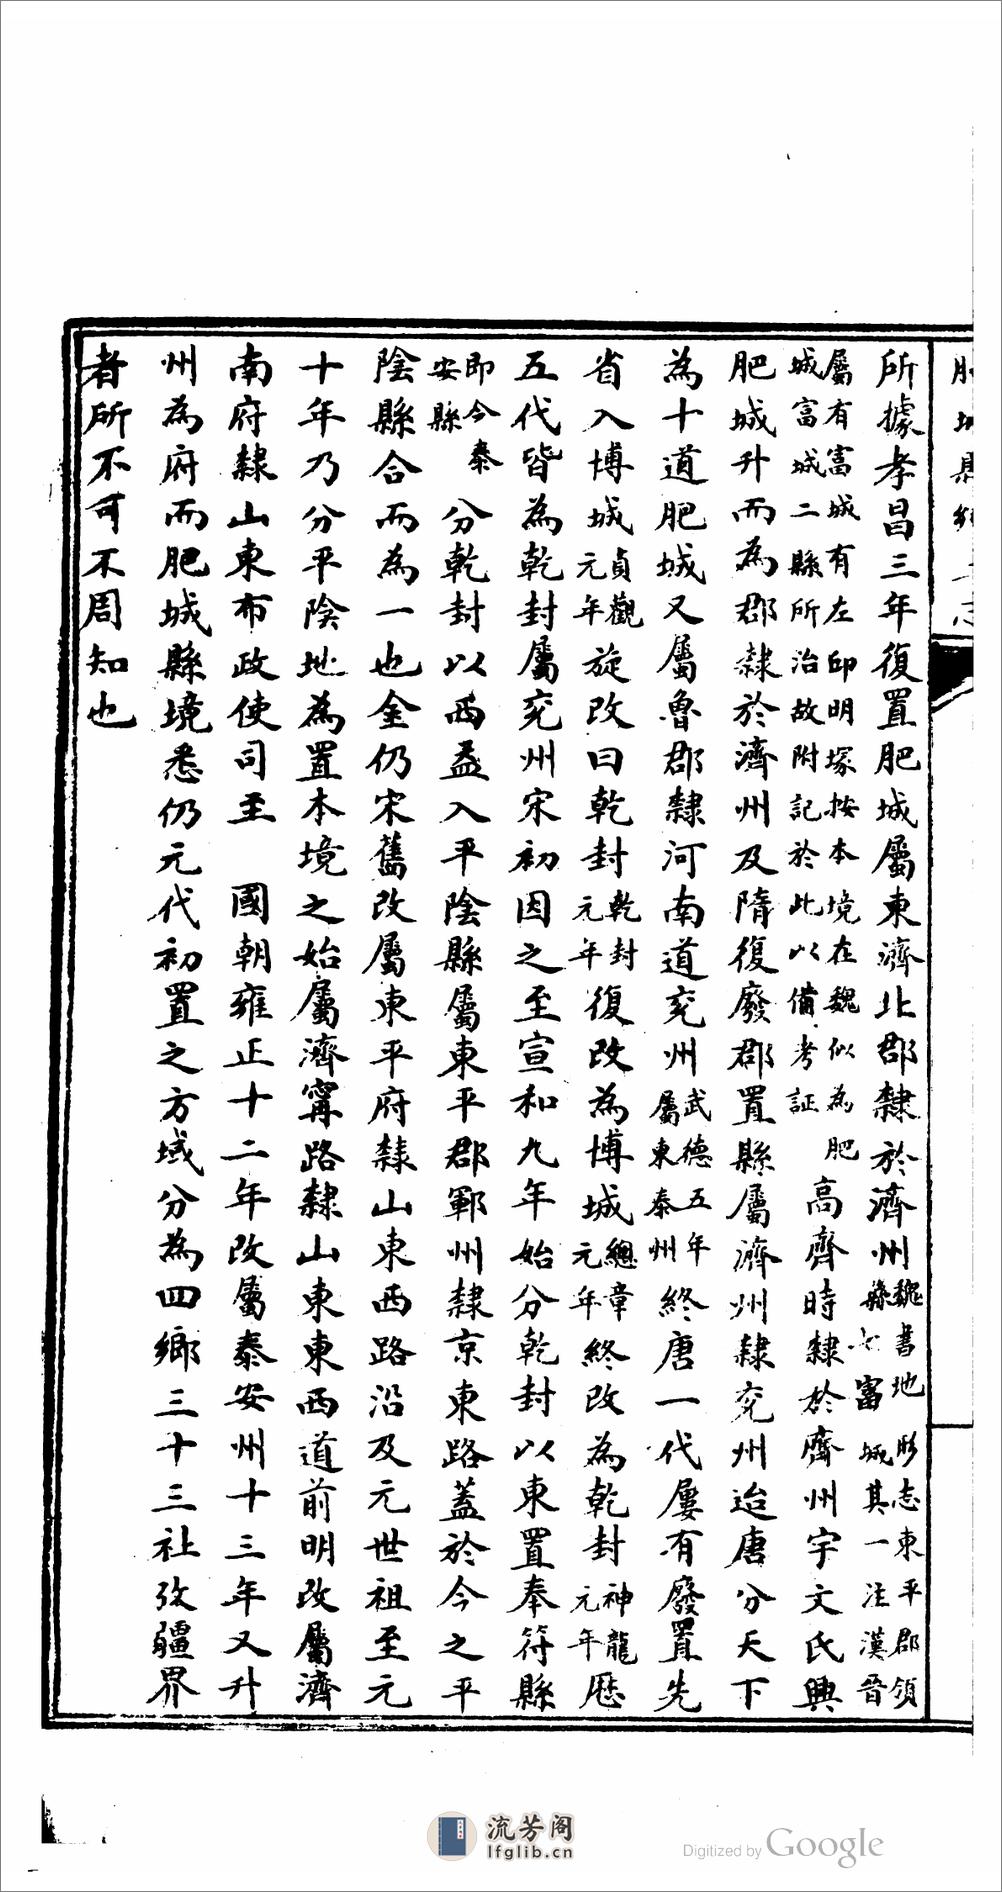 肥城縣鄉土志
所據孝昌三年復置肥城屬東濟北郡隸於濟州魏書地形志東平郡領
縣七富城其一注漢晉
屬有富城有左卬明塚按本境在魏似為肥
城富城二縣所治故附記於此以備考証高齊時隸於齊州宇文氏興
肥城升而為郡隸於濟州及隋復廢郡置縣屬濟州隸兖州迨唐分天下
為十道肥城又屬魯郡隸河南道兖州武德五年
屬東泰州終唐一代屢有廢置先
省入博城貞觀
元年旋改曰乾封乾封
元年復改為博城總章
元年終改為乾封神龍
元年歷
五代皆為乾封屬兖州宋初因之至宣和九年始分乾封以東置奉符縣
即今泰
安縣分乾封以西益入平陰縣屬東平郡鄆州隸京東路蓋於今之平
陰縣合而為一也金仍宋舊改屬東平府隸山東西路沿及元世祖至元
十年乃分平陰地為置本境之始屬濟寗路隸山東東西道前明改屬濟
南府隸山東布政使司至 國朝雍正十二年改屬泰安州十三年又升
州為府而肥城縣境悉仍元代初置之方域分為四鄉三十三社攷疆界
者所不可不周知也
流芳阁
lfglib.cn
Digitized by Google